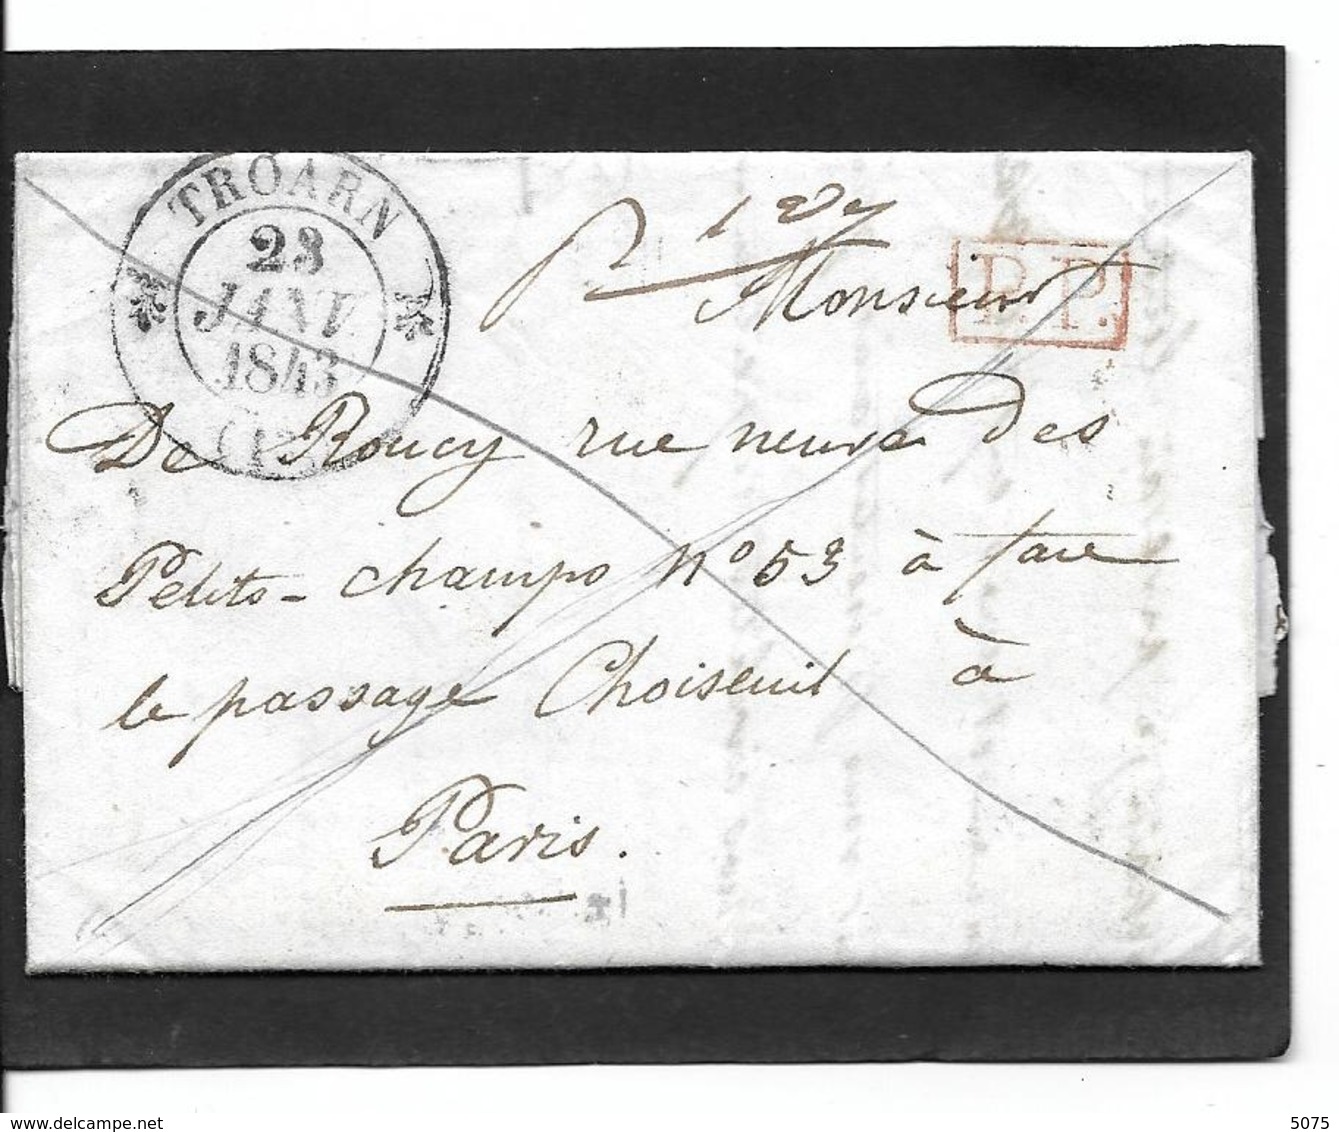 TROARN
23
JANV.
1843
P.P.
Monsieur
De Roucy rue neuve des
Petits-champs n° 53 à face
le passage Choiseuil à
Paris.
www.delcampe.net
5075